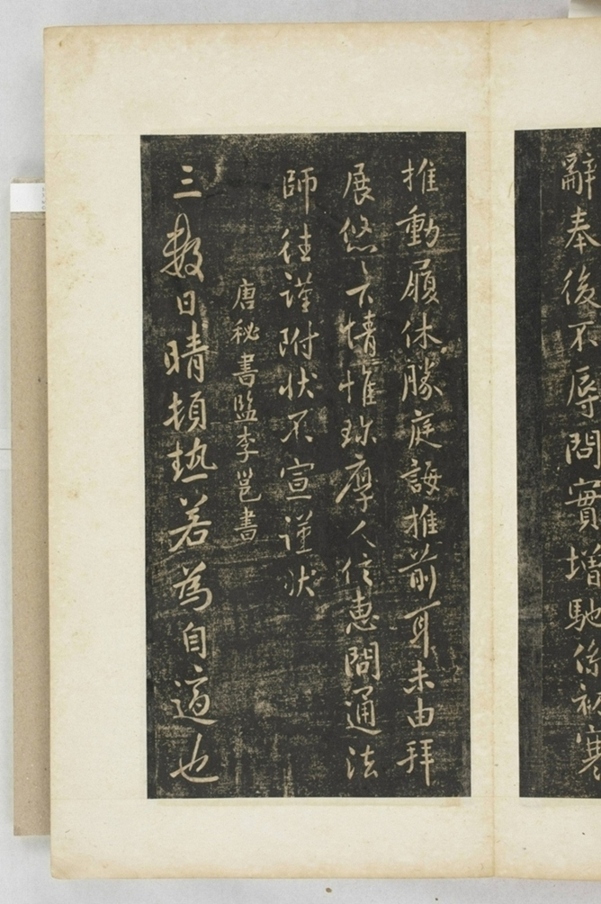 辭奉後不辱問實增馳係初寒
推動履休勝庭誨推前耳未由拜
展悠六情惟珎厚人信惠問通法
師往謹附狀不宣謹狀
唐秘書監李邕書
三數日晴頓熱若為自適也